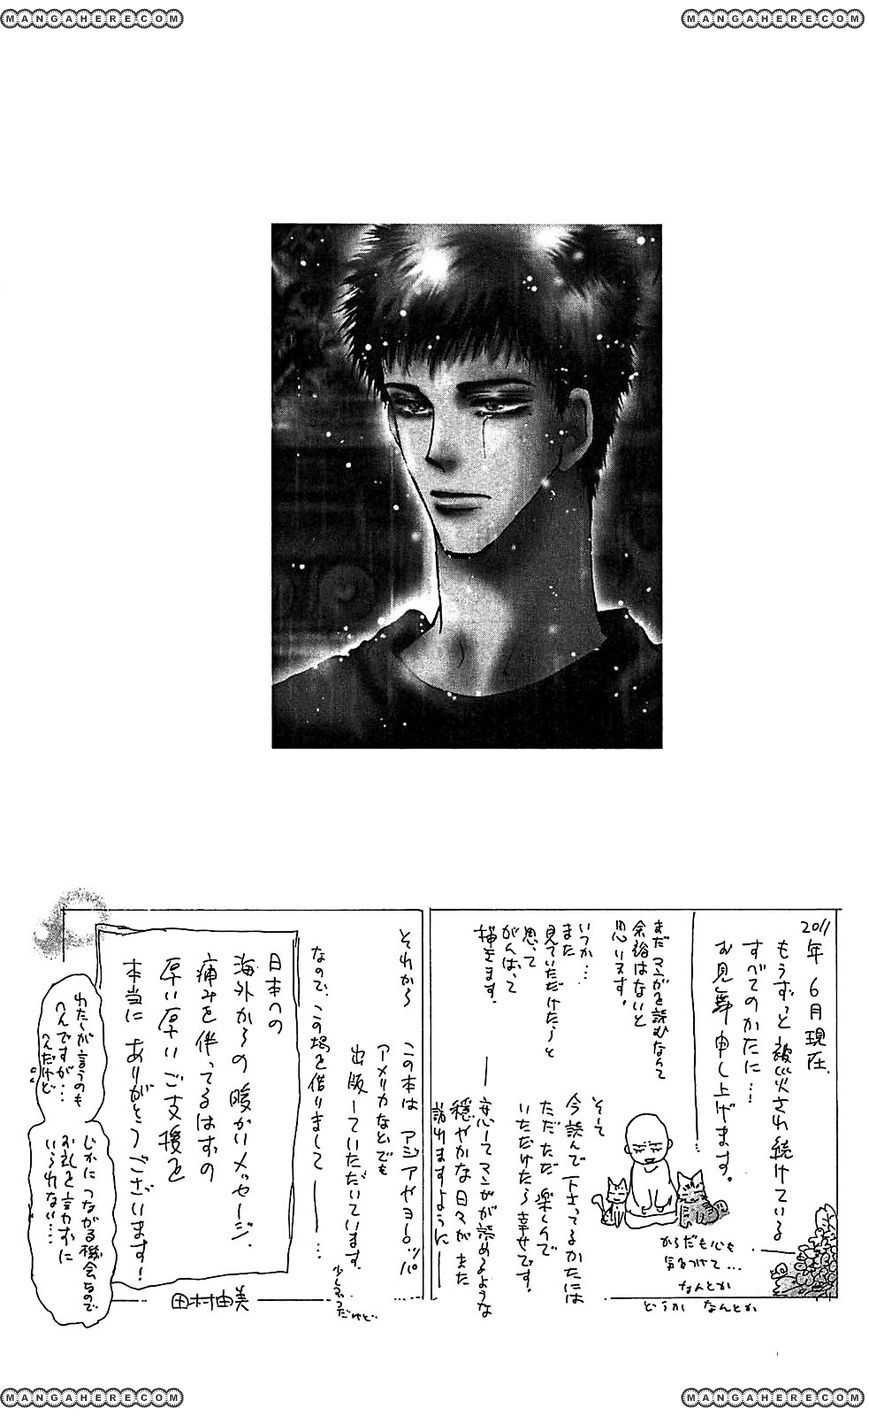 MANGAHERE.COM
MANGAHERE.COM
2011年6月現在、
もうずっと被災され続けている
すべてのかたに…
お見舞申し上げます。
からだも心も
気をつけて…
なんとか
どうか なんとか
まだマンガを読むなんて
余裕はないと
思います。
いつか…
また
見ていただけたらと
思って
がんばって
描きます。
そして
今読んで下さってるかたには
ただただ楽しんで
いただけたら幸せです。
―安心してマンガが読めるような
穏やかな日々がまた
訪れますように―
それから この本は アジアやヨーロッパ
アメリカなどでも
出版していただいています。
なので、この場を借りまして―…
日本への
海外からの暖かいメッセージ、
痛みを伴ってるはずの
厚い厚いご支援を
本当にありがとうございます!
わたしが言うのも
へんですが…
へんだけど
じかにつながる機会なので
お礼を言わずに
いられない…
田村由美
MANGAHERE.COM
MANGAHERE.COM